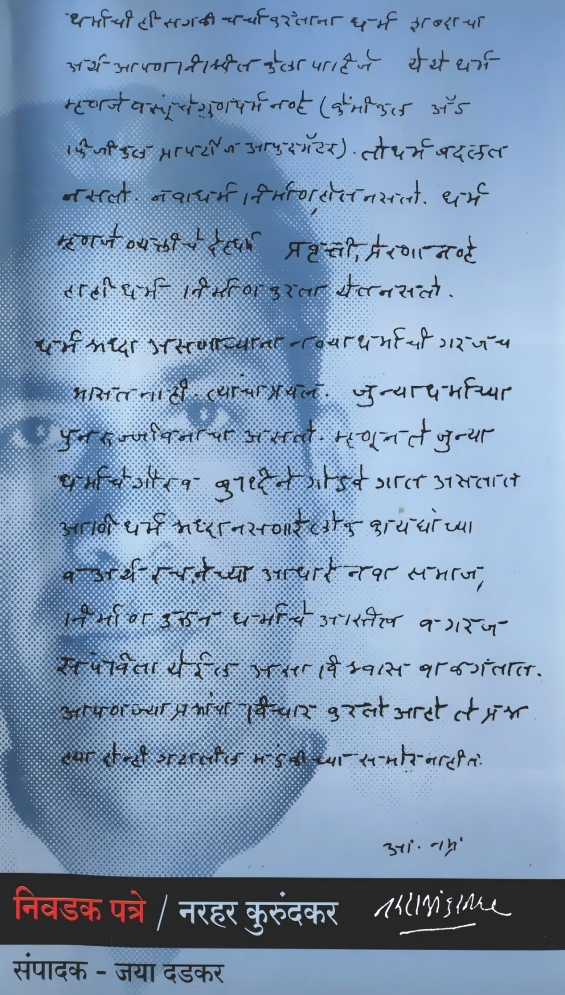 धर्माची ही सगळी चर्चा करताना धर्म शब्दाचा
अर्थ आपण निश्चित केला पाहिजे येथे धर्म
म्हणजे वस्तूंचे गुणधर्म नव्हे (केमीकल अँड
फिजीकल प्रापर्टीज आफ मॅटर). तो धर्म बदलत
नसतो. नवा धर्म निर्माण होत नसतो. धर्म
म्हणजे व्यक्तीचे देहधर्म प्रवृत्ती, प्रेरणा नव्हे
हाही धर्म निर्माण करता येत नसतो.
धर्म श्रध्दा असणाऱ्यांना नव्या धर्माची गरजच
भासत नाही. त्यांचा प्रयत्न. जुन्या धर्माच्या
पुनरुज्जीवनाचा असतो. म्हणून ते जुन्या
धर्माचे गौरव बुध्दीने गोडवे गात असतात
आणि धर्म श्रध्दा नसणारे लोक कायद्यांच्या
व अर्थ रचनेच्या आधारे नवा समाज,
निर्माण करून धर्माचे अस्तित्व व गरज
संपविता येईल असा विश्वास बाळगतात.
आपण ज्या प्रश्नांचा विचार करतो आहो ते प्रश्न
ह्या दोन्ही गटातील मंडळींच्या समोर नाहीत.
निवडक पत्रे / नरहर कुरुंदकर
संपादक - जया दडकर